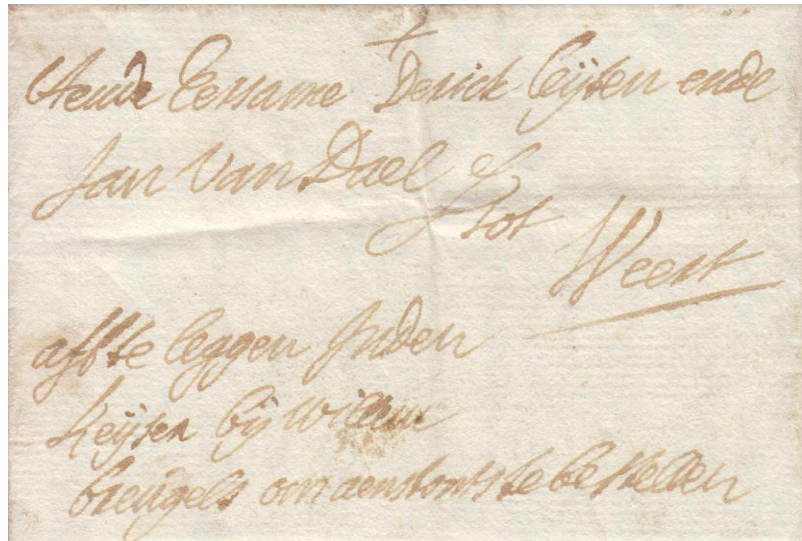 Eersame Derick Leijsen ende
Jan Van Dael tot
Weert
aff te leggen Inden
Keijser bij Willem
breugels om aenstonts te bestellen